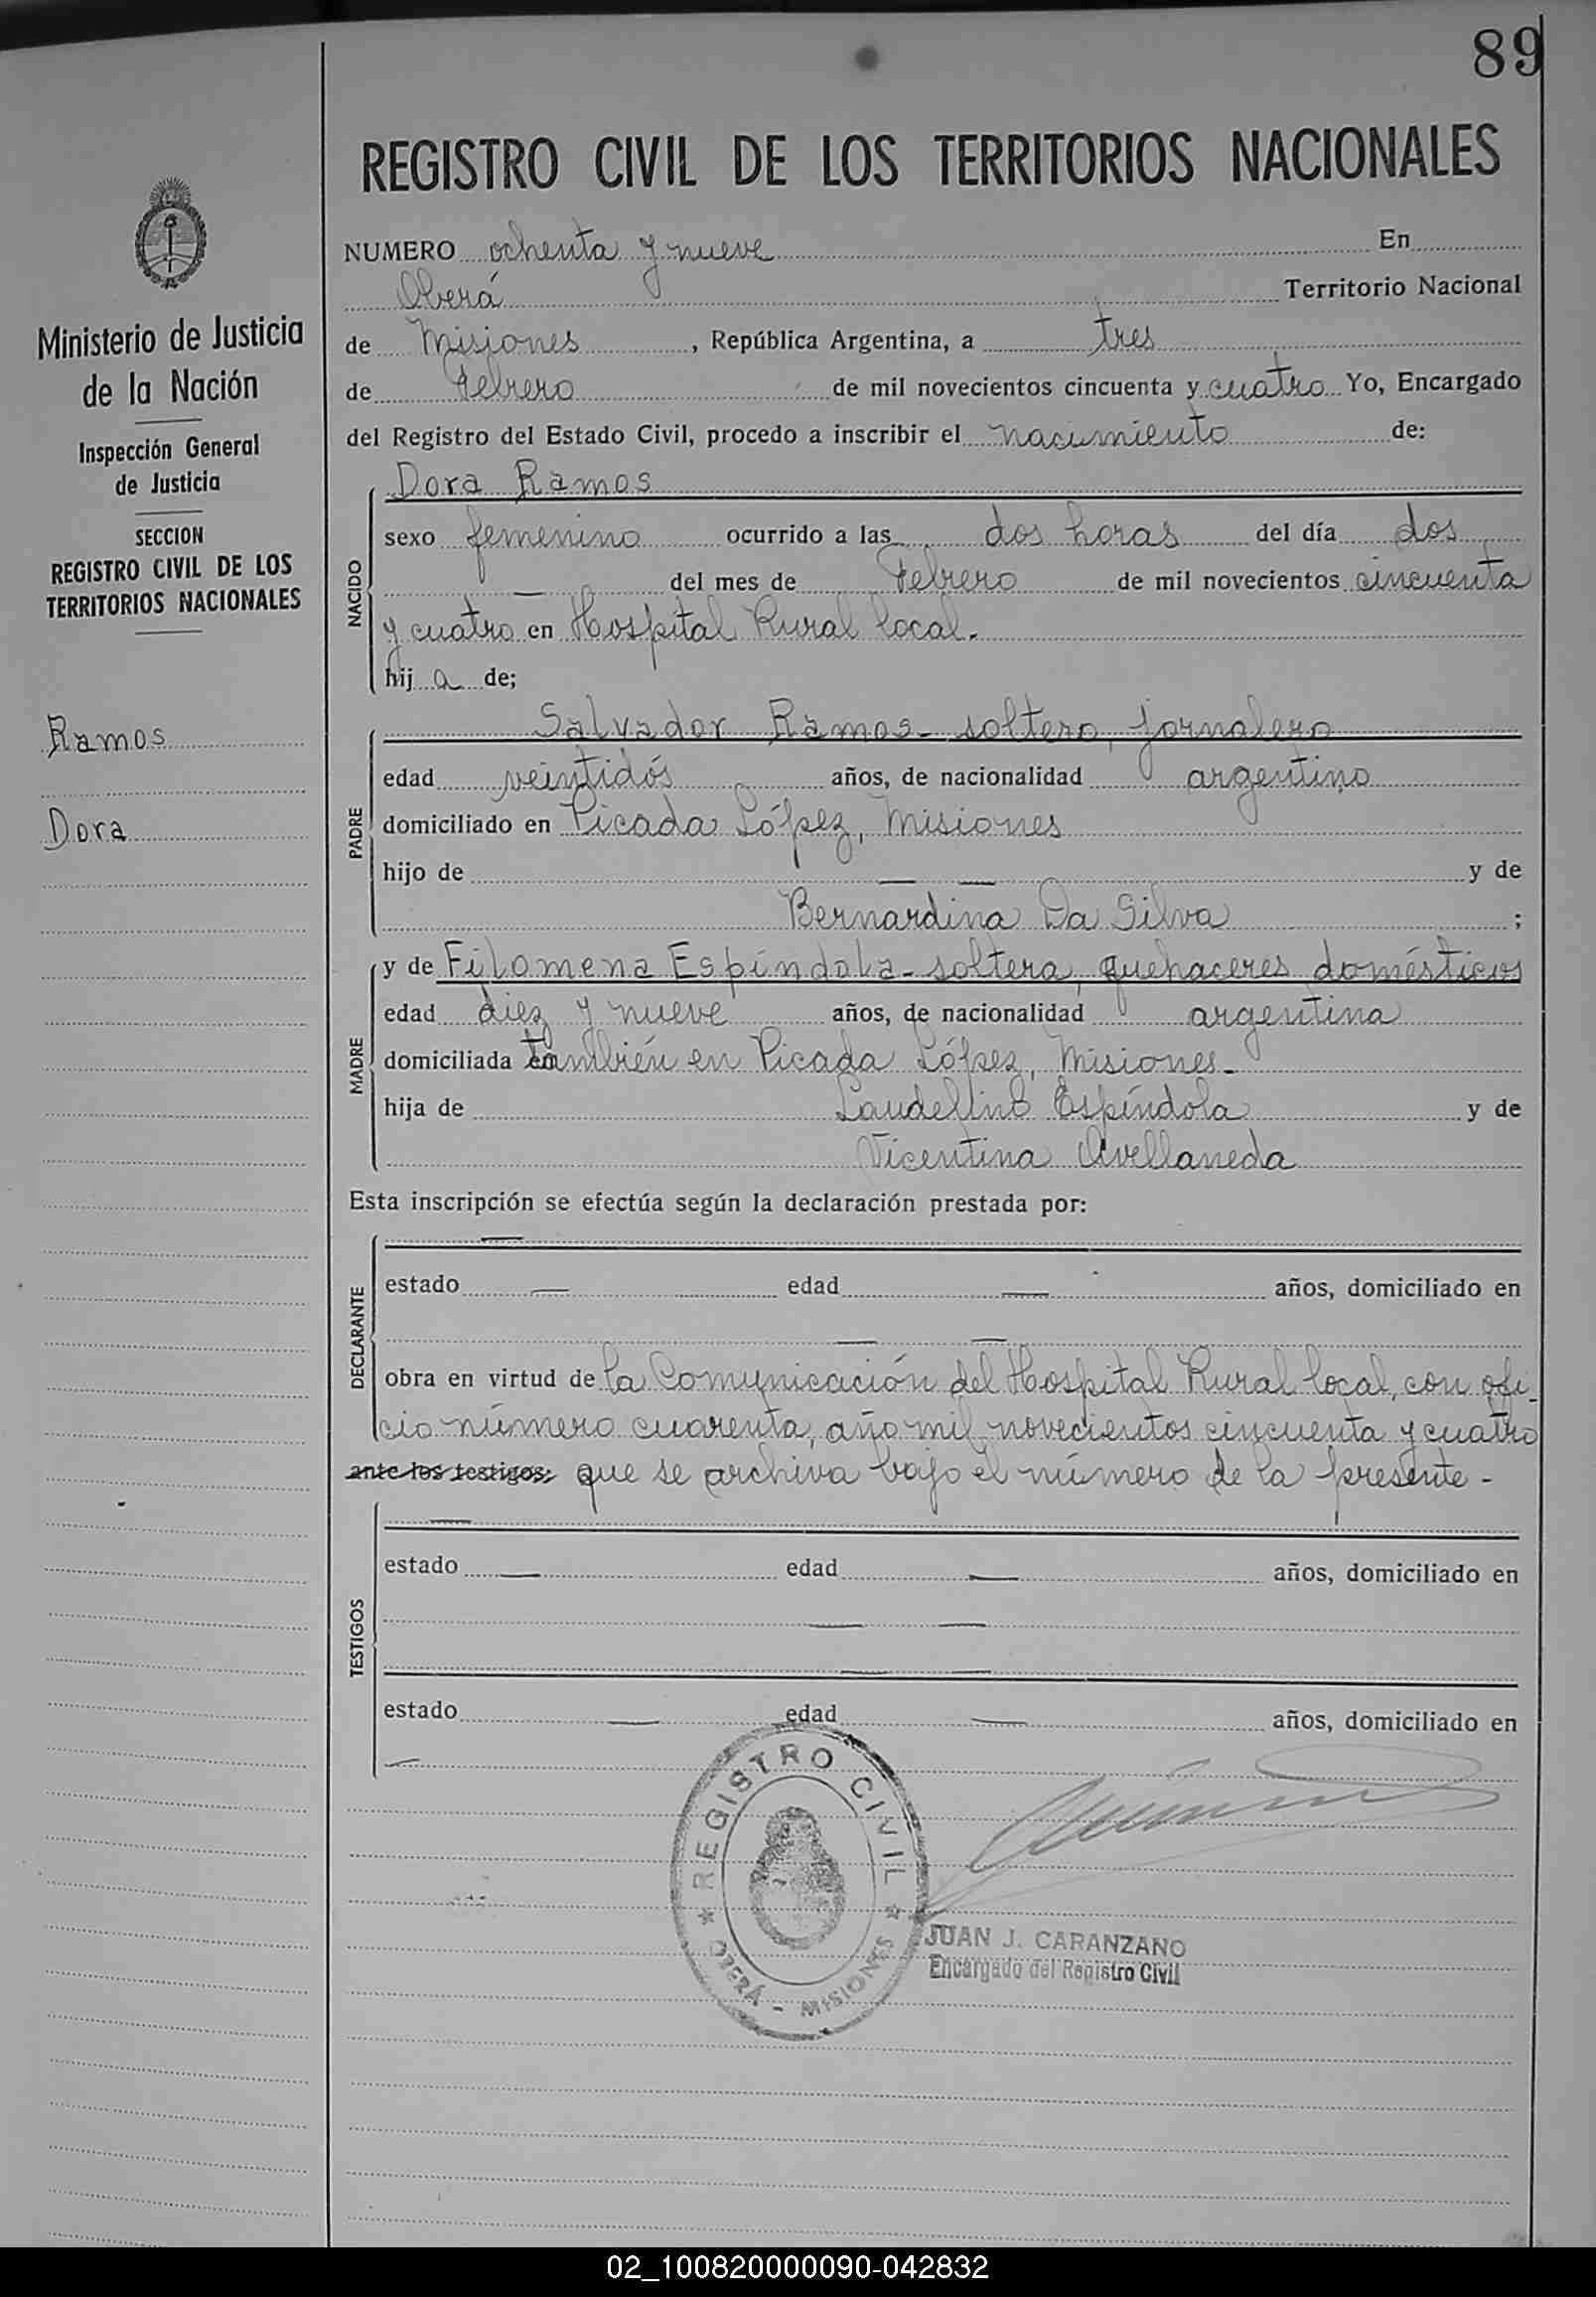 89
REGISTRO CIVIL DE LOS TERRITORIOS NACIONALES
Ministerio de Justicia
de la Nación
Inspección General
de Justicia
SECCION
REGISTRO CIVIL DE LOS
TERRITORIOS NACIONALES
Ramos
Dora
NUMERO ochenta y nueve En
Oberá Territorio Nacional
de Misiones, República Argentina, a tres
de Febrero de mil novecientos cincuenta y cuatro Yo, Encargado
del Registro del Estado Civil, procedo a inscribir el nacimiento de:
NACIDO
Dora Ramos
sexo femenino ocurrido a las dos horas del día dos
— del mes de Febrero de mil novecientos cincuenta
y cuatro en Hospital Rural local.
hija de;
PADRE
Salvador Ramos - soltero, jornalero
edad veintidós años, de nacionalidad argentino
domiciliado en Picada López, Misiones
hijo de — — y de
Bernardina Da Silva ;
MADRE
y de Filomena Espíndola - soltera, quehaceres domésticos
edad diez y nueve años, de nacionalidad argentina
domiciliada también en Picada López, Misiones -
hija de Laudelino Espíndola y de
Vicentina Avellaneda
Esta inscripción se efectúa según la declaración prestada por:
DECLARANTE
—
estado — edad — años, domiciliado en
— —
obra en virtud de la Comunicación del Hospital Rural local, con ofi-
cio número cuarenta, año mil novecientos cincuenta y cuatro
ante los testigos: que se archiva bajo el número de la presente -
TESTIGOS
—
estado — edad — años, domiciliado en
— —
— —
estado — edad — años, domiciliado en
—
REGISTRO CIVIL
OBERÁ - MISIONES
JUAN J. CARANZANO
Encargado del Registro Civil
02_100820000090-042832